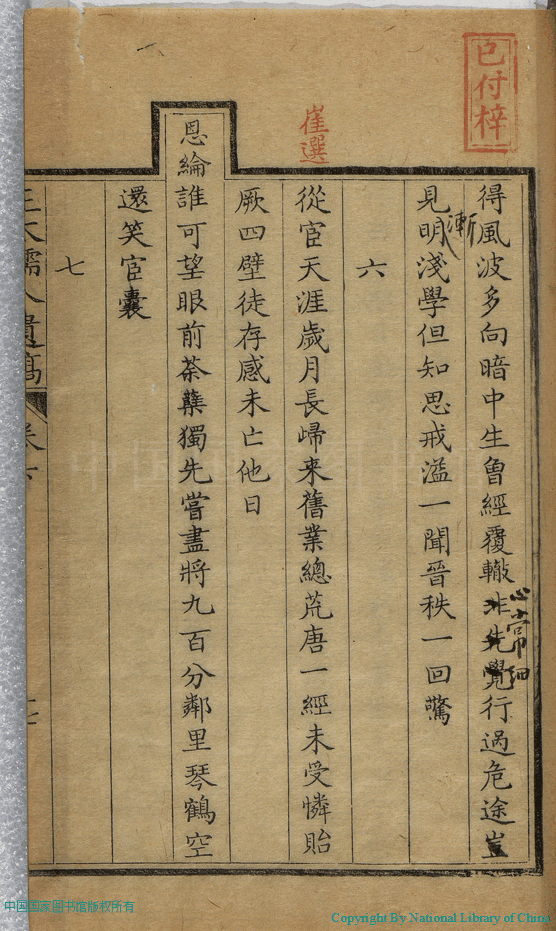 已付梓
得風波多向暗中生曾經覆轍非先覺行過危途豈
心常細
見明淺學但知思戒溢一聞晉秩一回驚
漸
六
崔選
從宦天涯歲月長歸來舊業總荒唐一經未受憐貽
厥四壁徒存感未亡他日
恩綸誰可望眼前荼蘖獨先嘗盡將九百分鄰里琴鶴空
還笑宦囊
七
遺稿
中国国家图书馆版权所有
Copyright By National Library of China